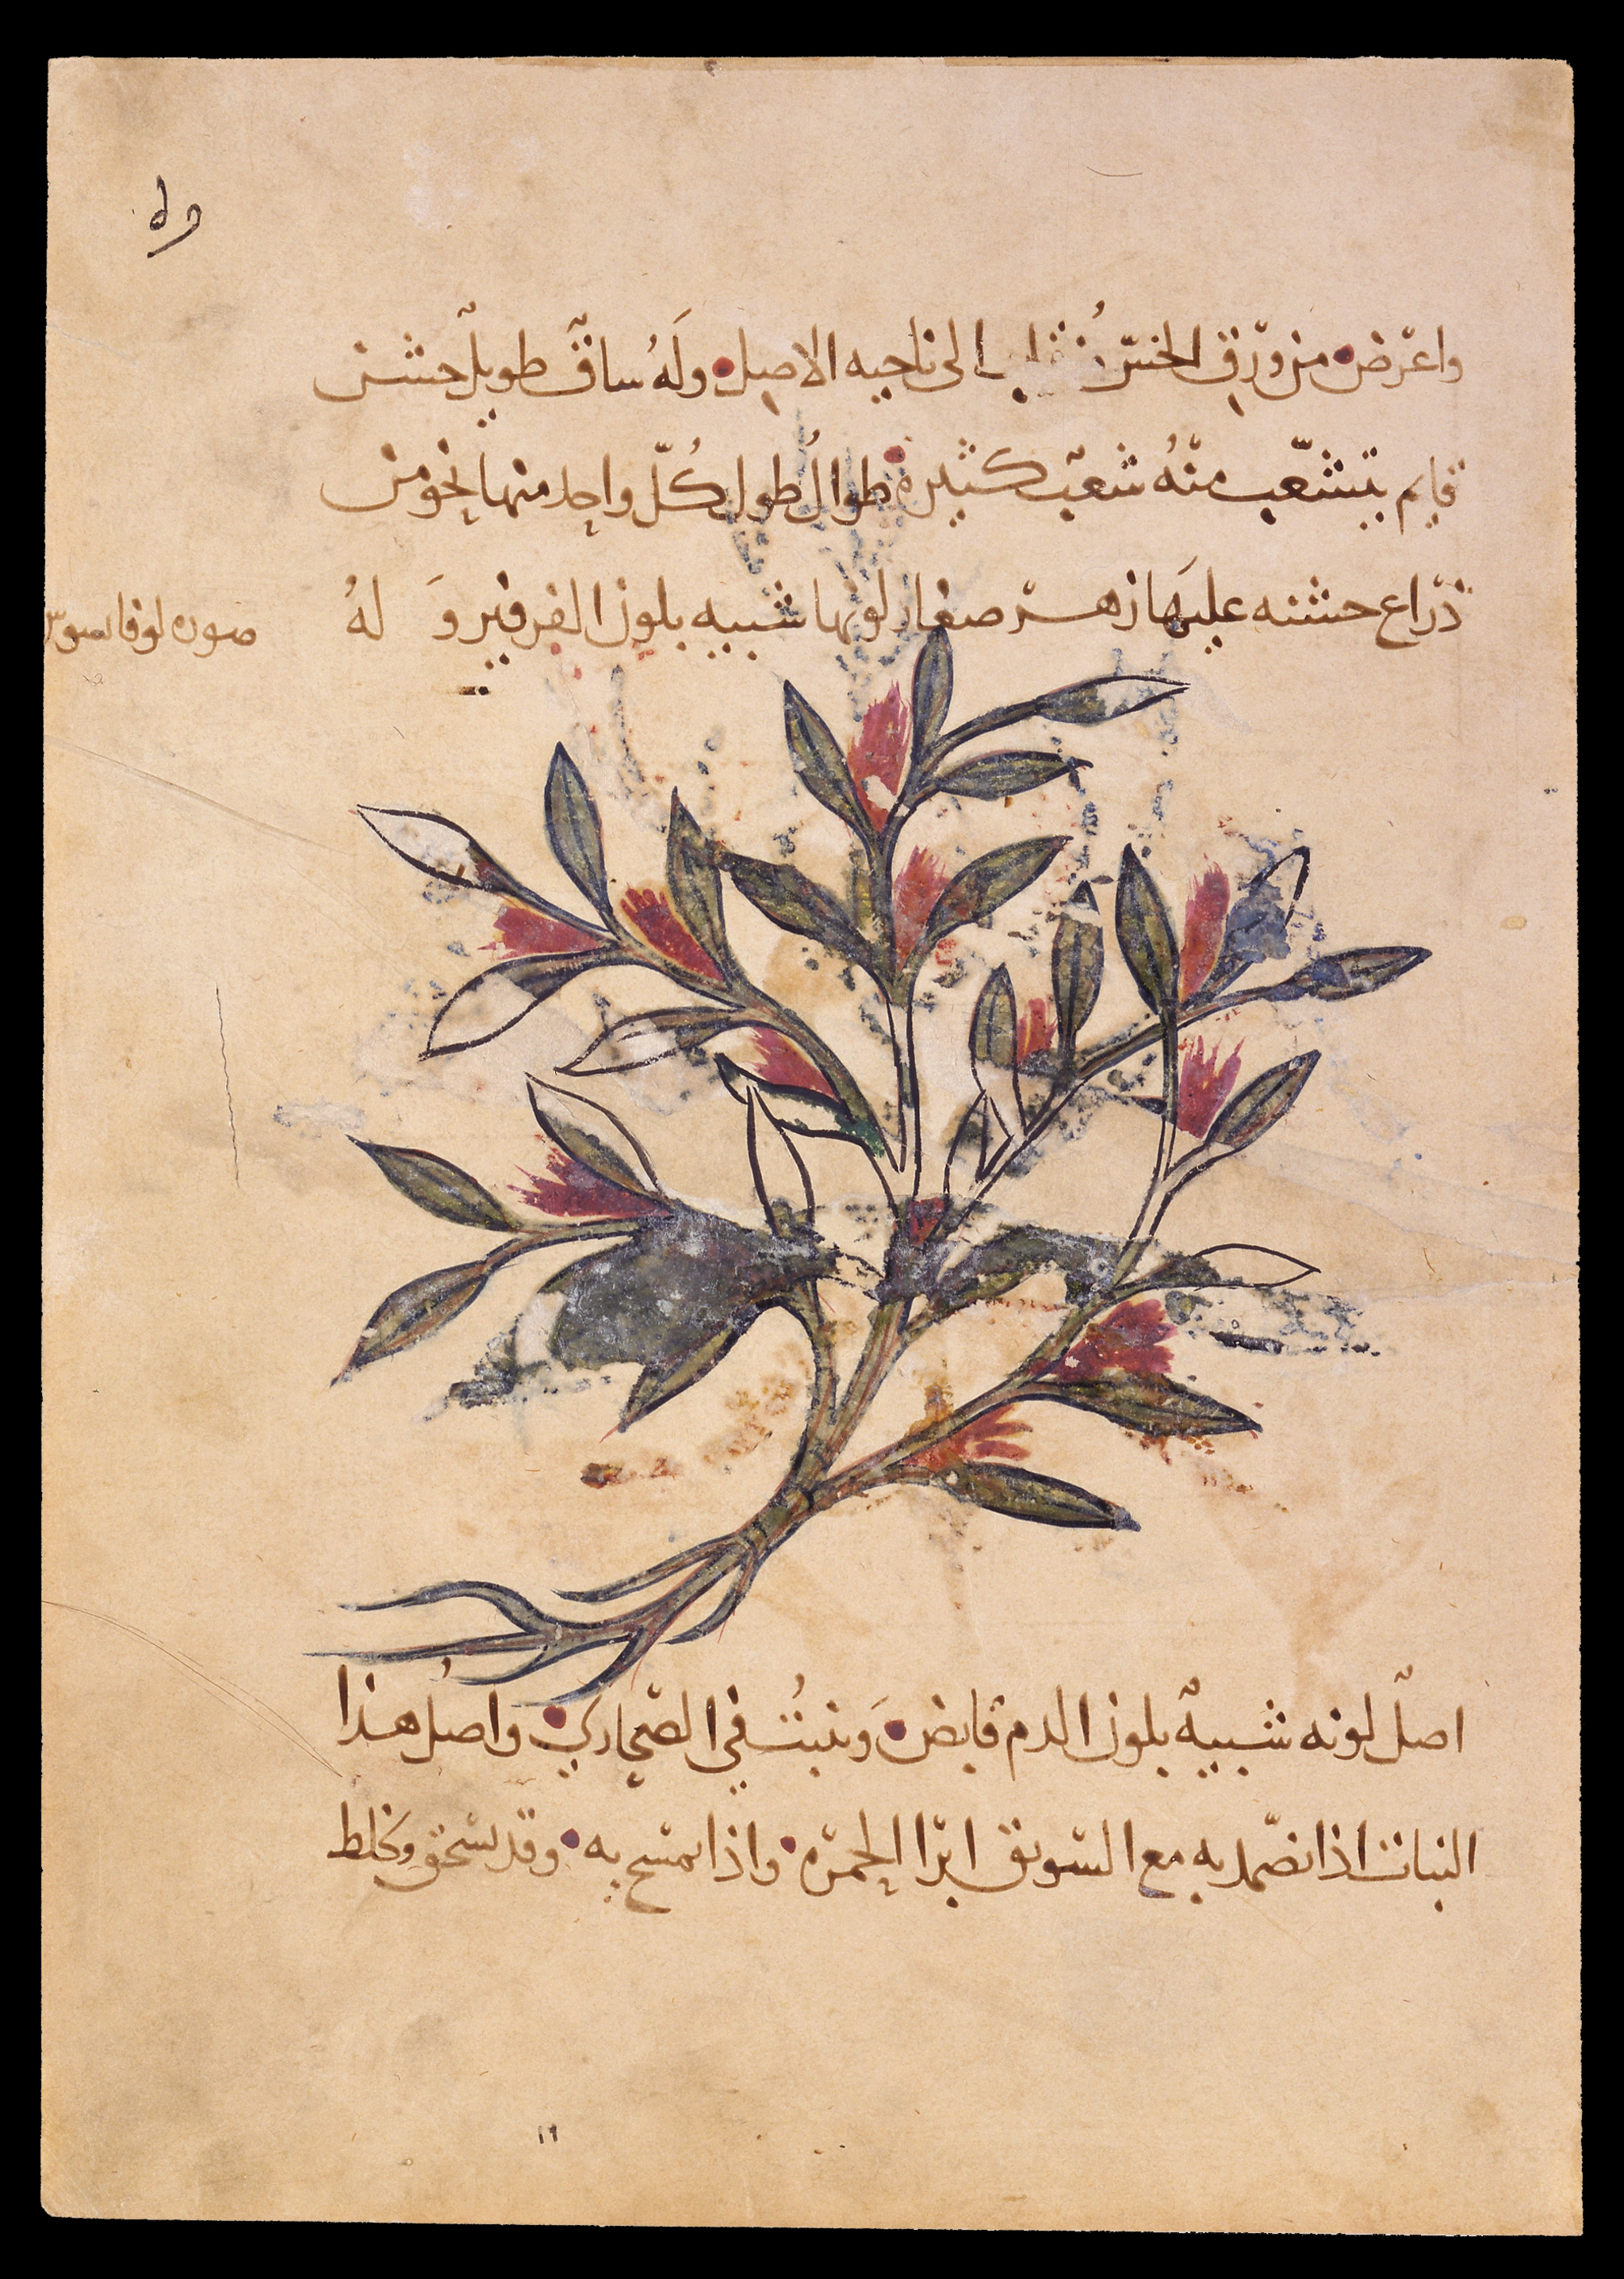 واعرض من ورق الخس الى ناحيه الاصل وله ساق طويل خشن
قايم يتشعب منه شعب كثيرة طوال طول كل واحد منها نحو من
ذراع خشنه عليها زهر صغار لونها شبيه بلون الفرفير و له
صوره لوفاىسوس
اصل لونه شبيه بلون الدم قابض وينبت في الصحاري واصل هذا
النبات اذا تضمد به مع السويق ابرا الحمرة واذا تمسح به وقد يسحق ويخلط